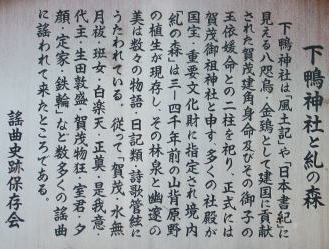 下鴨神社と糺の森
下鴨神社は「風土記」や「日本書紀」に
見える八咫烏・金鵄として建国に貢献
された賀茂建角身命及びその御子の
玉依媛命との二柱を祀り、正式には
賀茂御祖神社と申す。多くの社殿が
国宝・重要文化財に指定され、境内
「糺の森」は三―四千年前の山背原野
の植生が現存し、その林泉と幽邃の
美は数々の物語・日記類・詩歌管絃に
うたわれている。従って「賀茂・水無
月祓・班女・白楽天・正尊・是我意・
代主・生田敦盛・賀茂物狂・室君・夕
顔・定家・鉄輪」など数多くの謡曲
に謡われて来たところである。
謡曲史跡保存会